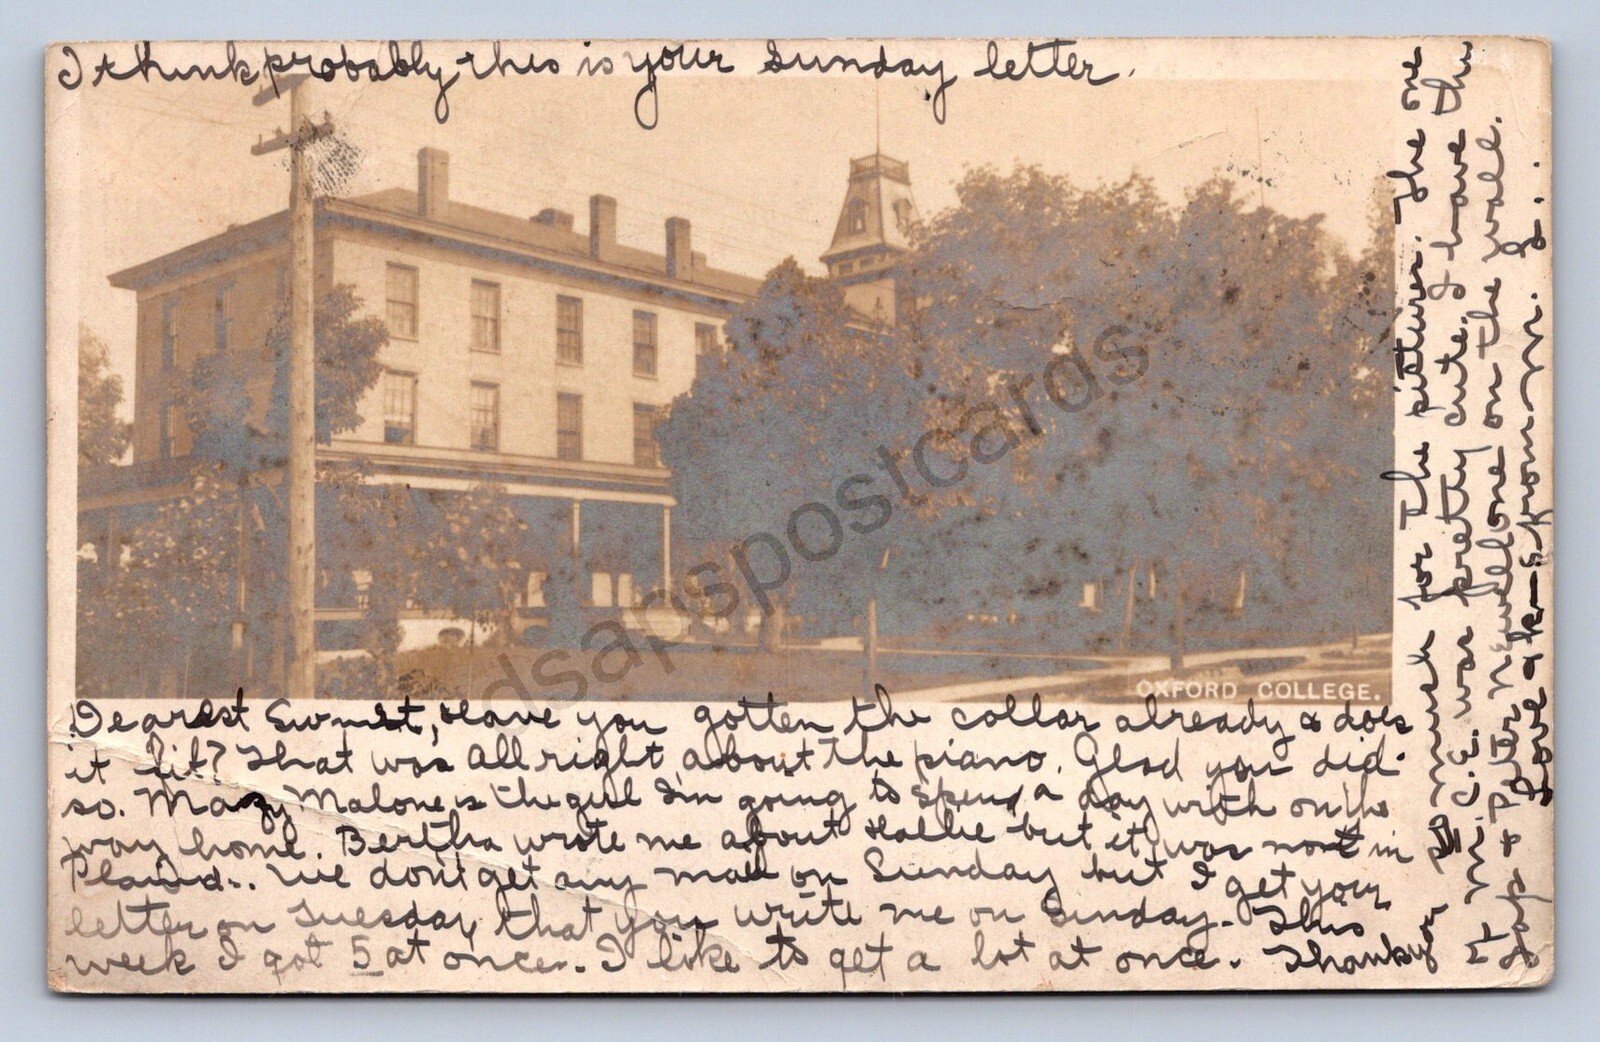 I think probably this is your Sunday letter.
OXFORD COLLEGE.
Dearest Have you gotten the collar already & does
it fit? That was all right about the piano. Glad you did
so. Mazy Malone is the girl I'm going to spend a day with on the
way home. Bertha wrote me about Hallie but it was not in
We don't get any mail on Sunday but I get your
letter on Tuesday, that you write me on Sunday. This
week I got 5 at once. I like to get a lot at once. Thank you
so much for the pictures. The one
at M. C. E. was pretty cute. I have the
& Peter Newell one on the wall.
Love from
dsapspostcards